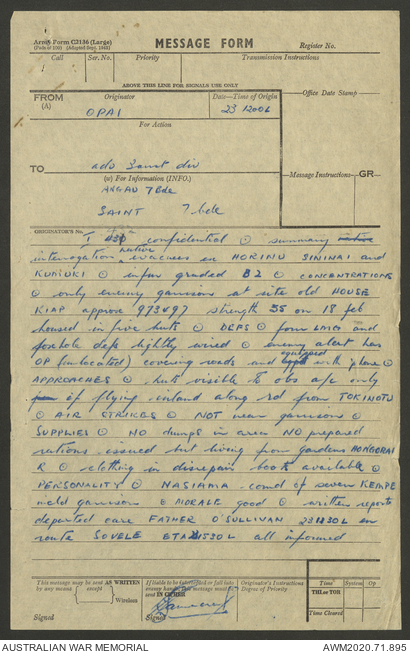 Army Form C2136 (Large)
(Pads of 100) (Adapted Sept. 1942)
MESSAGE FORM
Register No.
Call
Ser. No.
Priority
Transmission Instructions
ABOVE THIS LINE FOR SIGNALS USE ONLY
FROM
(A)
Originator
OPAI
Date—Time of Origin
23 1200L
Office Date Stamp
For Action
TO
adv
div
(W) For Information (INFO.)
ANGAU 7 Bde
SAINT 7 bde
Message Instructions
GR
ORIGINATOR'S No.
I confidential ⊙ summary
native
interrogation evacuees ex HORINU SININAI and
KUMIUKI ⊙ infm graded B2 ⊙ CONCENTRATIONS
⊙ only enemy garrison at site old HOUSE
KIAP approx 973497 strength 35 on 18 feb
housed in five huts ⊙ DEFS ⊙ four LMGs and
foxhole defs lightly wired ⊙ enemy alert has
OP (unlocated) covering roads and
equipped with 'phone ⊙
APPROACHES ⊙ huts visible to obs a/c only
if flying inland along rd from TOKINOTU
⊙ AIR STRIKES ⊙ NOT near garrison ⊙
SUPPLIES ⊙ NO dumps in area NO prepared
rations issued but living from gardens HONGORAI
R ⊙ clothing in disrepair boots available ⊙
PERSONALITY ⊙ NASIAMA comd of seven KEMPE
incld garrison ⊙ MORALE good ⊙ written reports
departed care FATHER O'SULLIVAN 231130L en
route SOVELE ETA 1530L all informed
This message may be sent AS WRITTEN
by any means { except } Wireless
Signed
If liable to be intercepted or fall into
enemy hands, this message must be
sent IN CIPHER
Signed
Originator's Instructions
Degree of Priority
Time
System
Op
THI or TOR
Time Cleared
AUSTRALIAN WAR MEMORIAL
AWM2020.71.895